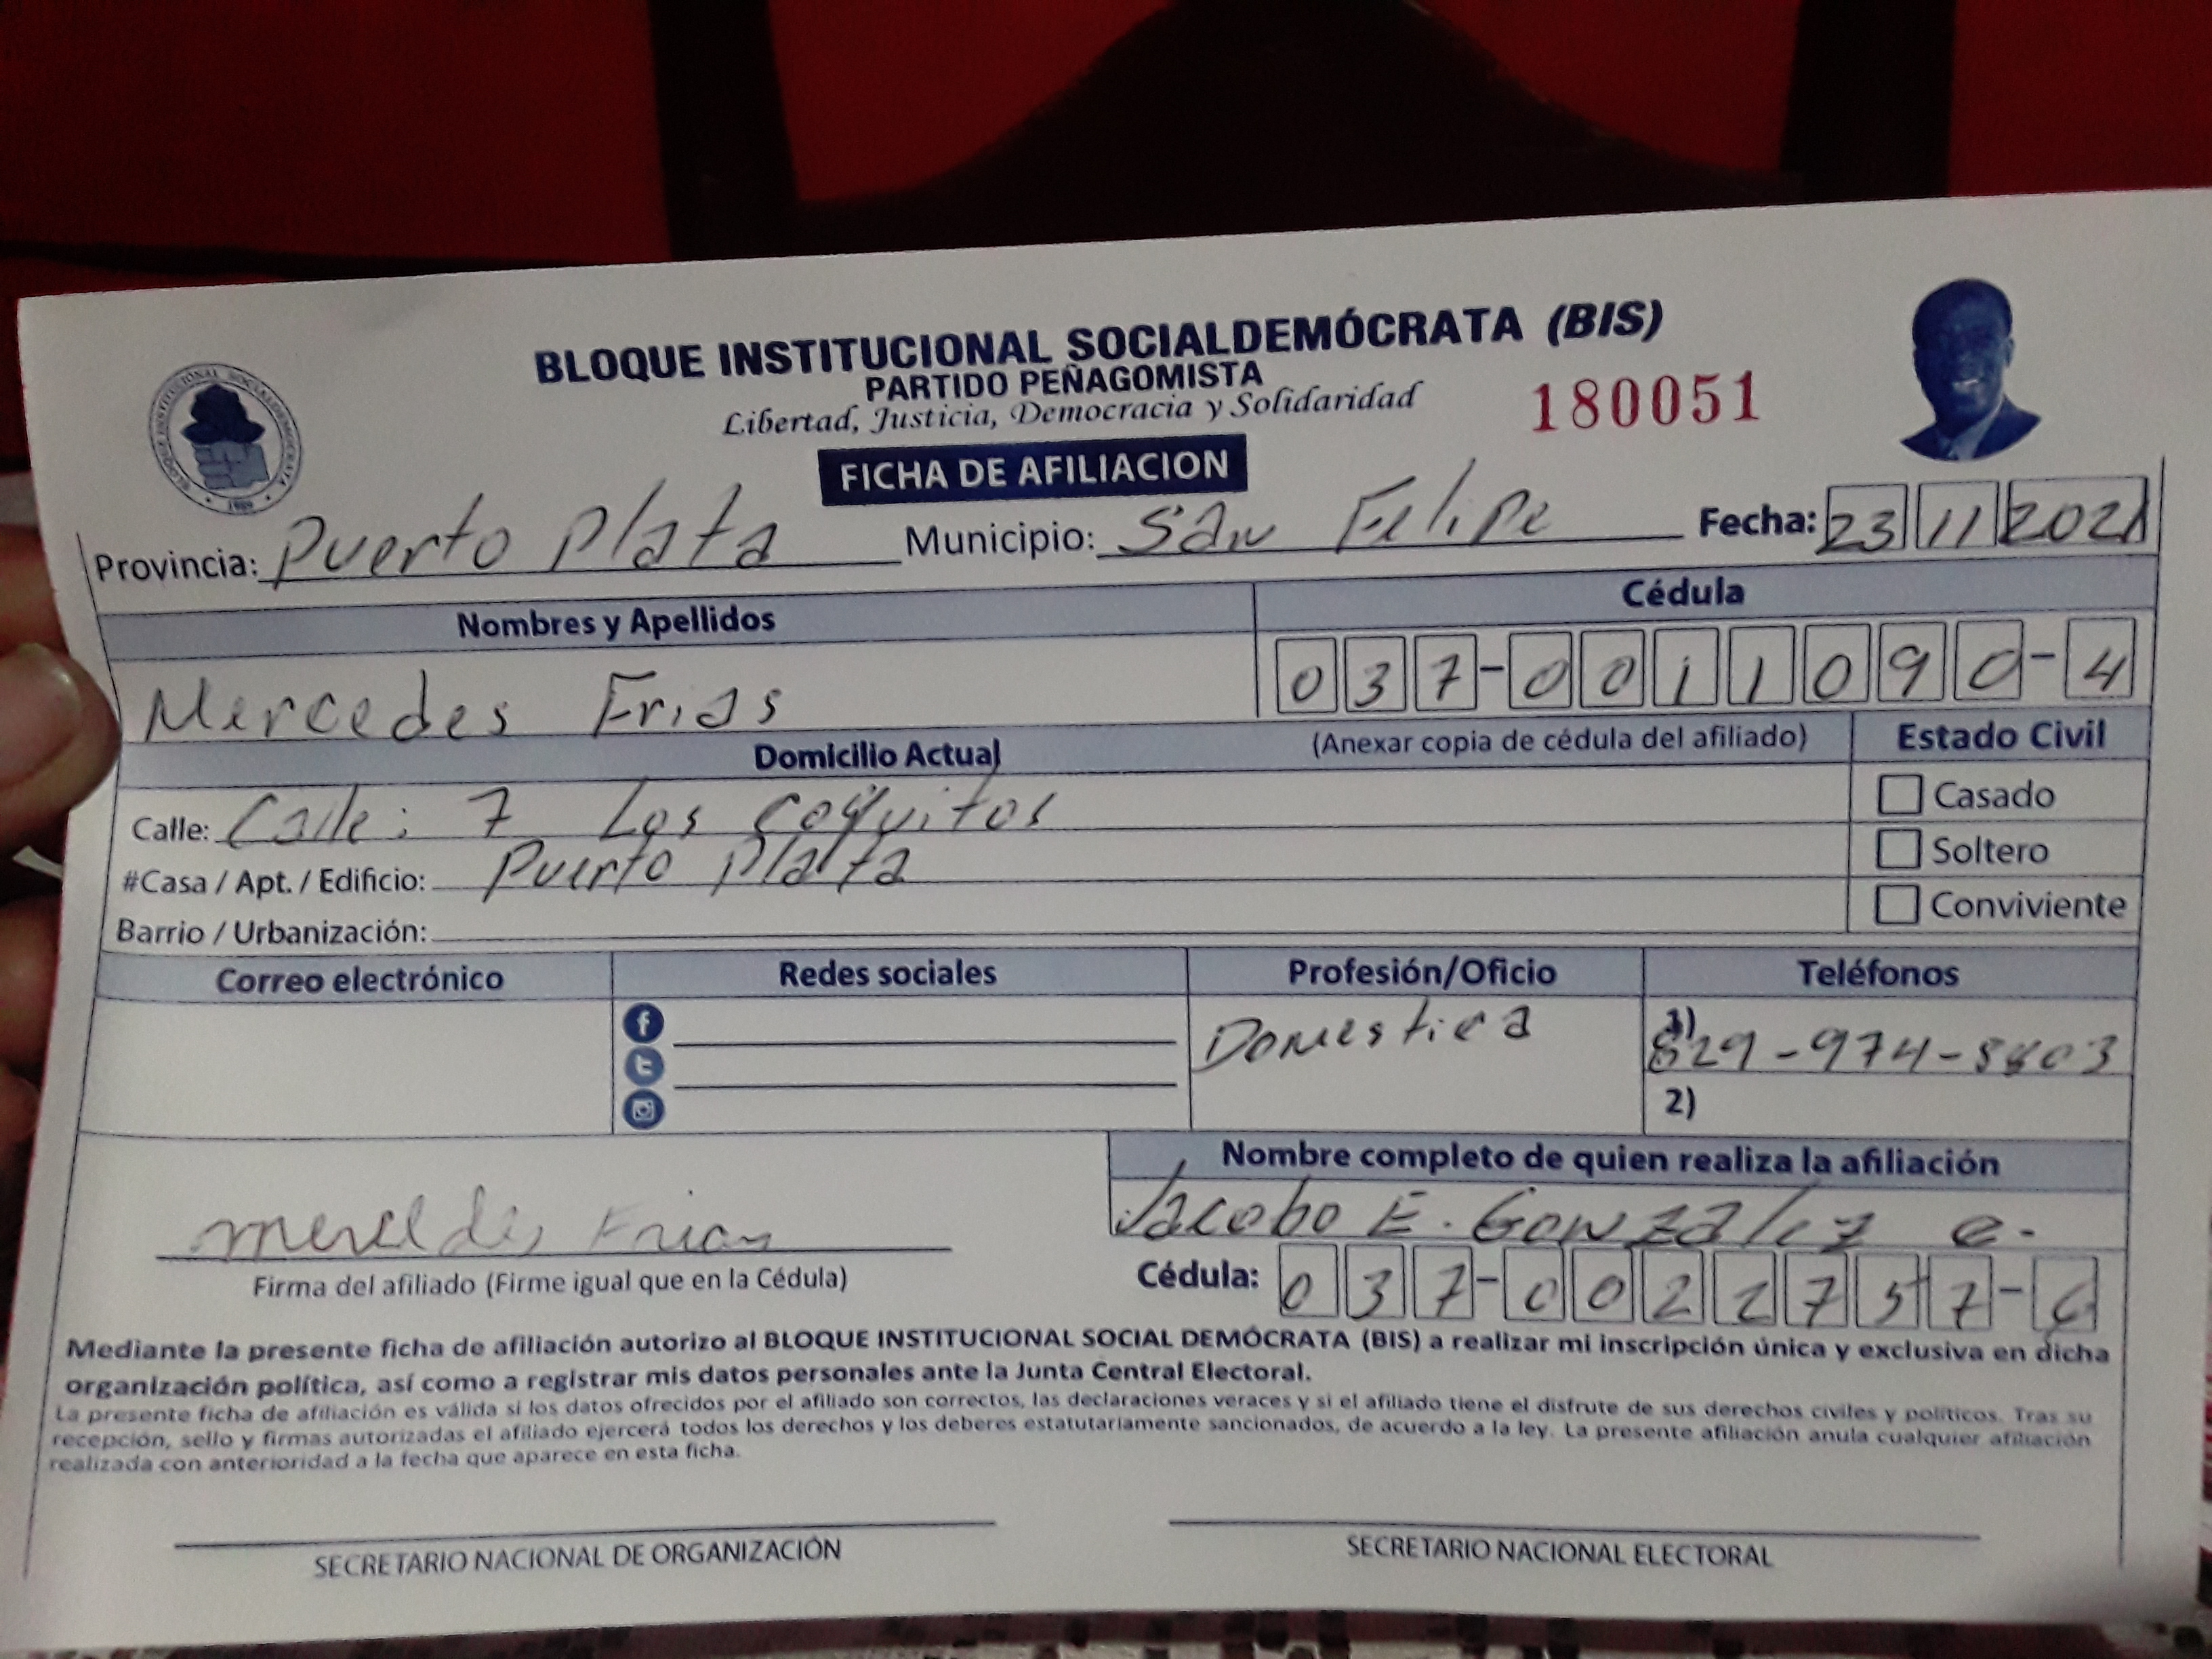 BLOQUE INSTITUCIONAL SOCIALDEMÓCRATA (BIS)
PARTIDO PEÑAGOMISTA
Libertad, Justicia, Democracia y Solidaridad
180051
BLOQUE INSTITUCIONAL SOCIALDEMOCRATA
1989
FICHA DE AFILIACION
Provincia: Puerto Plata Municipio: San Felipe Fecha: 23 11 2021
Nombres y Apellidos Cédula
Mercedes Frias 037-0011090-4
Domicilio Actual (Anexar copia de cédula del afiliado) Estado Civil
Calle: Calle: 7 Los Coquitos Casado
#Casa / Apt. / Edificio: Puerto Plata Soltero
Barrio / Urbanización: Conviviente
Correo electrónico Redes sociales Profesión/Oficio Teléfonos
Domestica 1) 829-974-
2)
Nombre completo de quien realiza la afiliación
Jacobo E. Gonzalez
Firma del afiliado (Firme igual que en la Cédula) Cédula: 037-002
Mediante la presente ficha de afiliación autorizo al BLOQUE INSTITUCIONAL SOCIAL DEMÓCRATA (BIS) a realizar mi inscripción única y exclusiva en dicha
organización política, así como a registrar mis datos personales ante la Junta Central Electoral.
La presente ficha de afiliación es válida si los datos ofrecidos por el afiliado son correctos, las declaraciones veraces y si el afiliado tiene el disfrute de sus derechos civiles y políticos. Tras su
recepción, sello y firmas autorizadas el afiliado ejercerá todos los derechos y los deberes estatutariamente sancionados, de acuerdo a la ley. La presente afiliación anula cualquier afiliación
realizada con anterioridad a la fecha que aparece en esta ficha.
SECRETARIO NACIONAL DE ORGANIZACIÓN SECRETARIO NACIONAL ELECTORAL